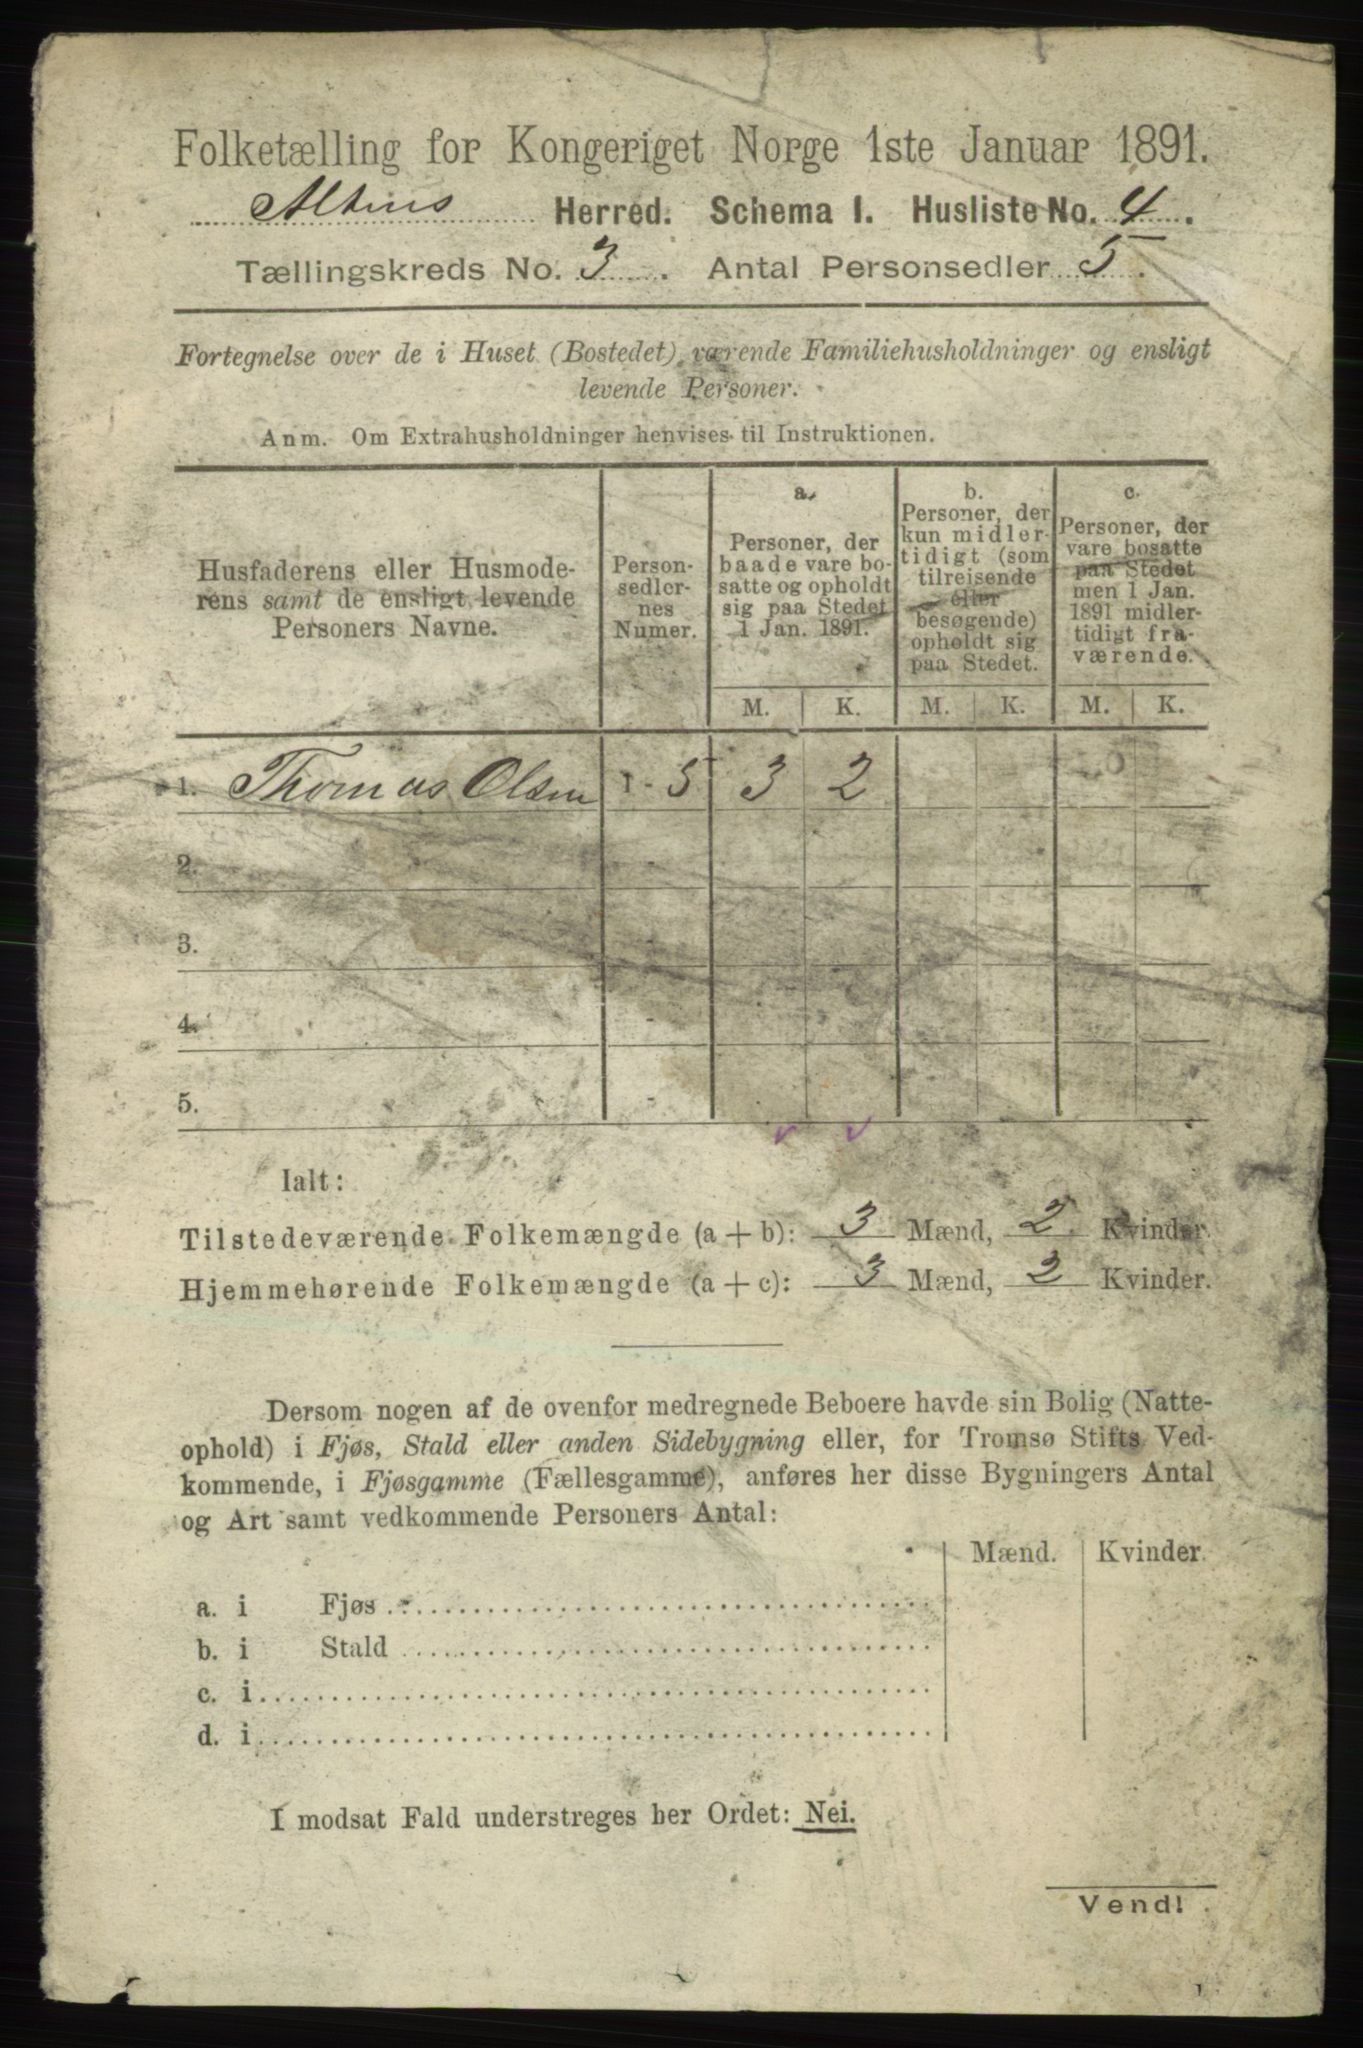 Folketælling for Kongeriget Norge 1ste Januar 1891.
Altens Herred. Schema I. Husliste No. 4.
Tællingskreds No. 3. Antal Personsedler 5.
Fortegnelse over de i Huset (Bostedet) værende Familiehusholdninger og ensligt
levende Personer.
Anm. Om Extrahusholdninger henvises til Instruktionen.
Husfaderens eller Husmode-
rens samt de ensligt levende
Personers Navne.
Person-
sedler-
nes
Numer.
a.
Personer, der
baade vare bo-
satte og opholdt
sig paa Stedet
1 Jan. 1891.
b.
Personer, der
kun midler-
tidigt (som
tilreisende
eller
besøgende)
opholdt sig
paa Stedet.
c.
Personer, der
vare bosatte
paa Stedet
men 1 Jan.
1891 midler-
tidigt fra-
værende.
M. K. M. K. M. K.
1. Thomas Olsen 1 - 5 3 2
2.
3.
4.
5.
Ialt:
Tilstedeværende Folkemængde (a + b): 3 Mænd, 2 Kvinder.
Hjemmehørende Folkemængde (a + c): 3 Mænd, 2 Kvinder.
Dersom nogen af de ovenfor medregnede Beboere havde sin Bolig (Natte-
ophold) i Fjøs, Stald eller anden Sidebygning eller, for Tromsø Stifts Ved-
kommende, i Fjøsgamme (Fællesgamme), anføres her disse Bygningers Antal
og Art samt vedkommende Personers Antal:
Mænd. Kvinder.
a. i Fjøs
b. i Stald
c. i
d. i
I modsat Fald understreges her Ordet: Nei.
Vend!